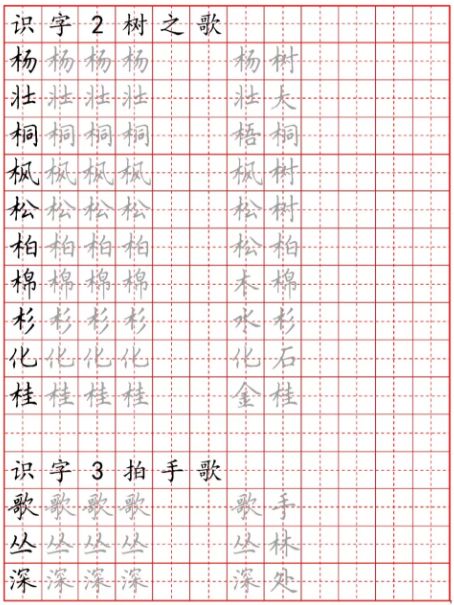 识字2树之歌
杨杨杨杨 杨树
壮壮壮壮 壮大
桐桐桐桐 梧桐
枫枫枫枫 枫树
松松松松 松树
柏柏柏柏 松柏
棉棉棉棉 木棉
杉杉杉杉 水杉
化化化化 化石
桂桂桂桂 金桂
识字3拍手歌
歌歌歌歌 歌手
丛丛丛丛 丛林
深深深深 深处